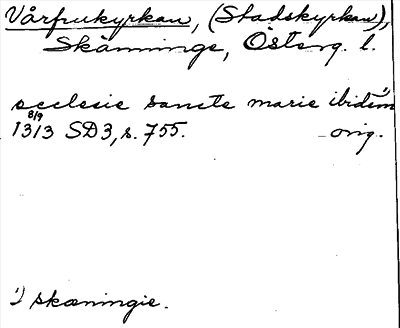 Vårfrukyrkan, (Stadskyrkan),
Skänninge, Österg. l.
ecclesie sancte marie ibidem ¹)
8/9
1313 SD3, s. 755. orig.
¹) skæningie.